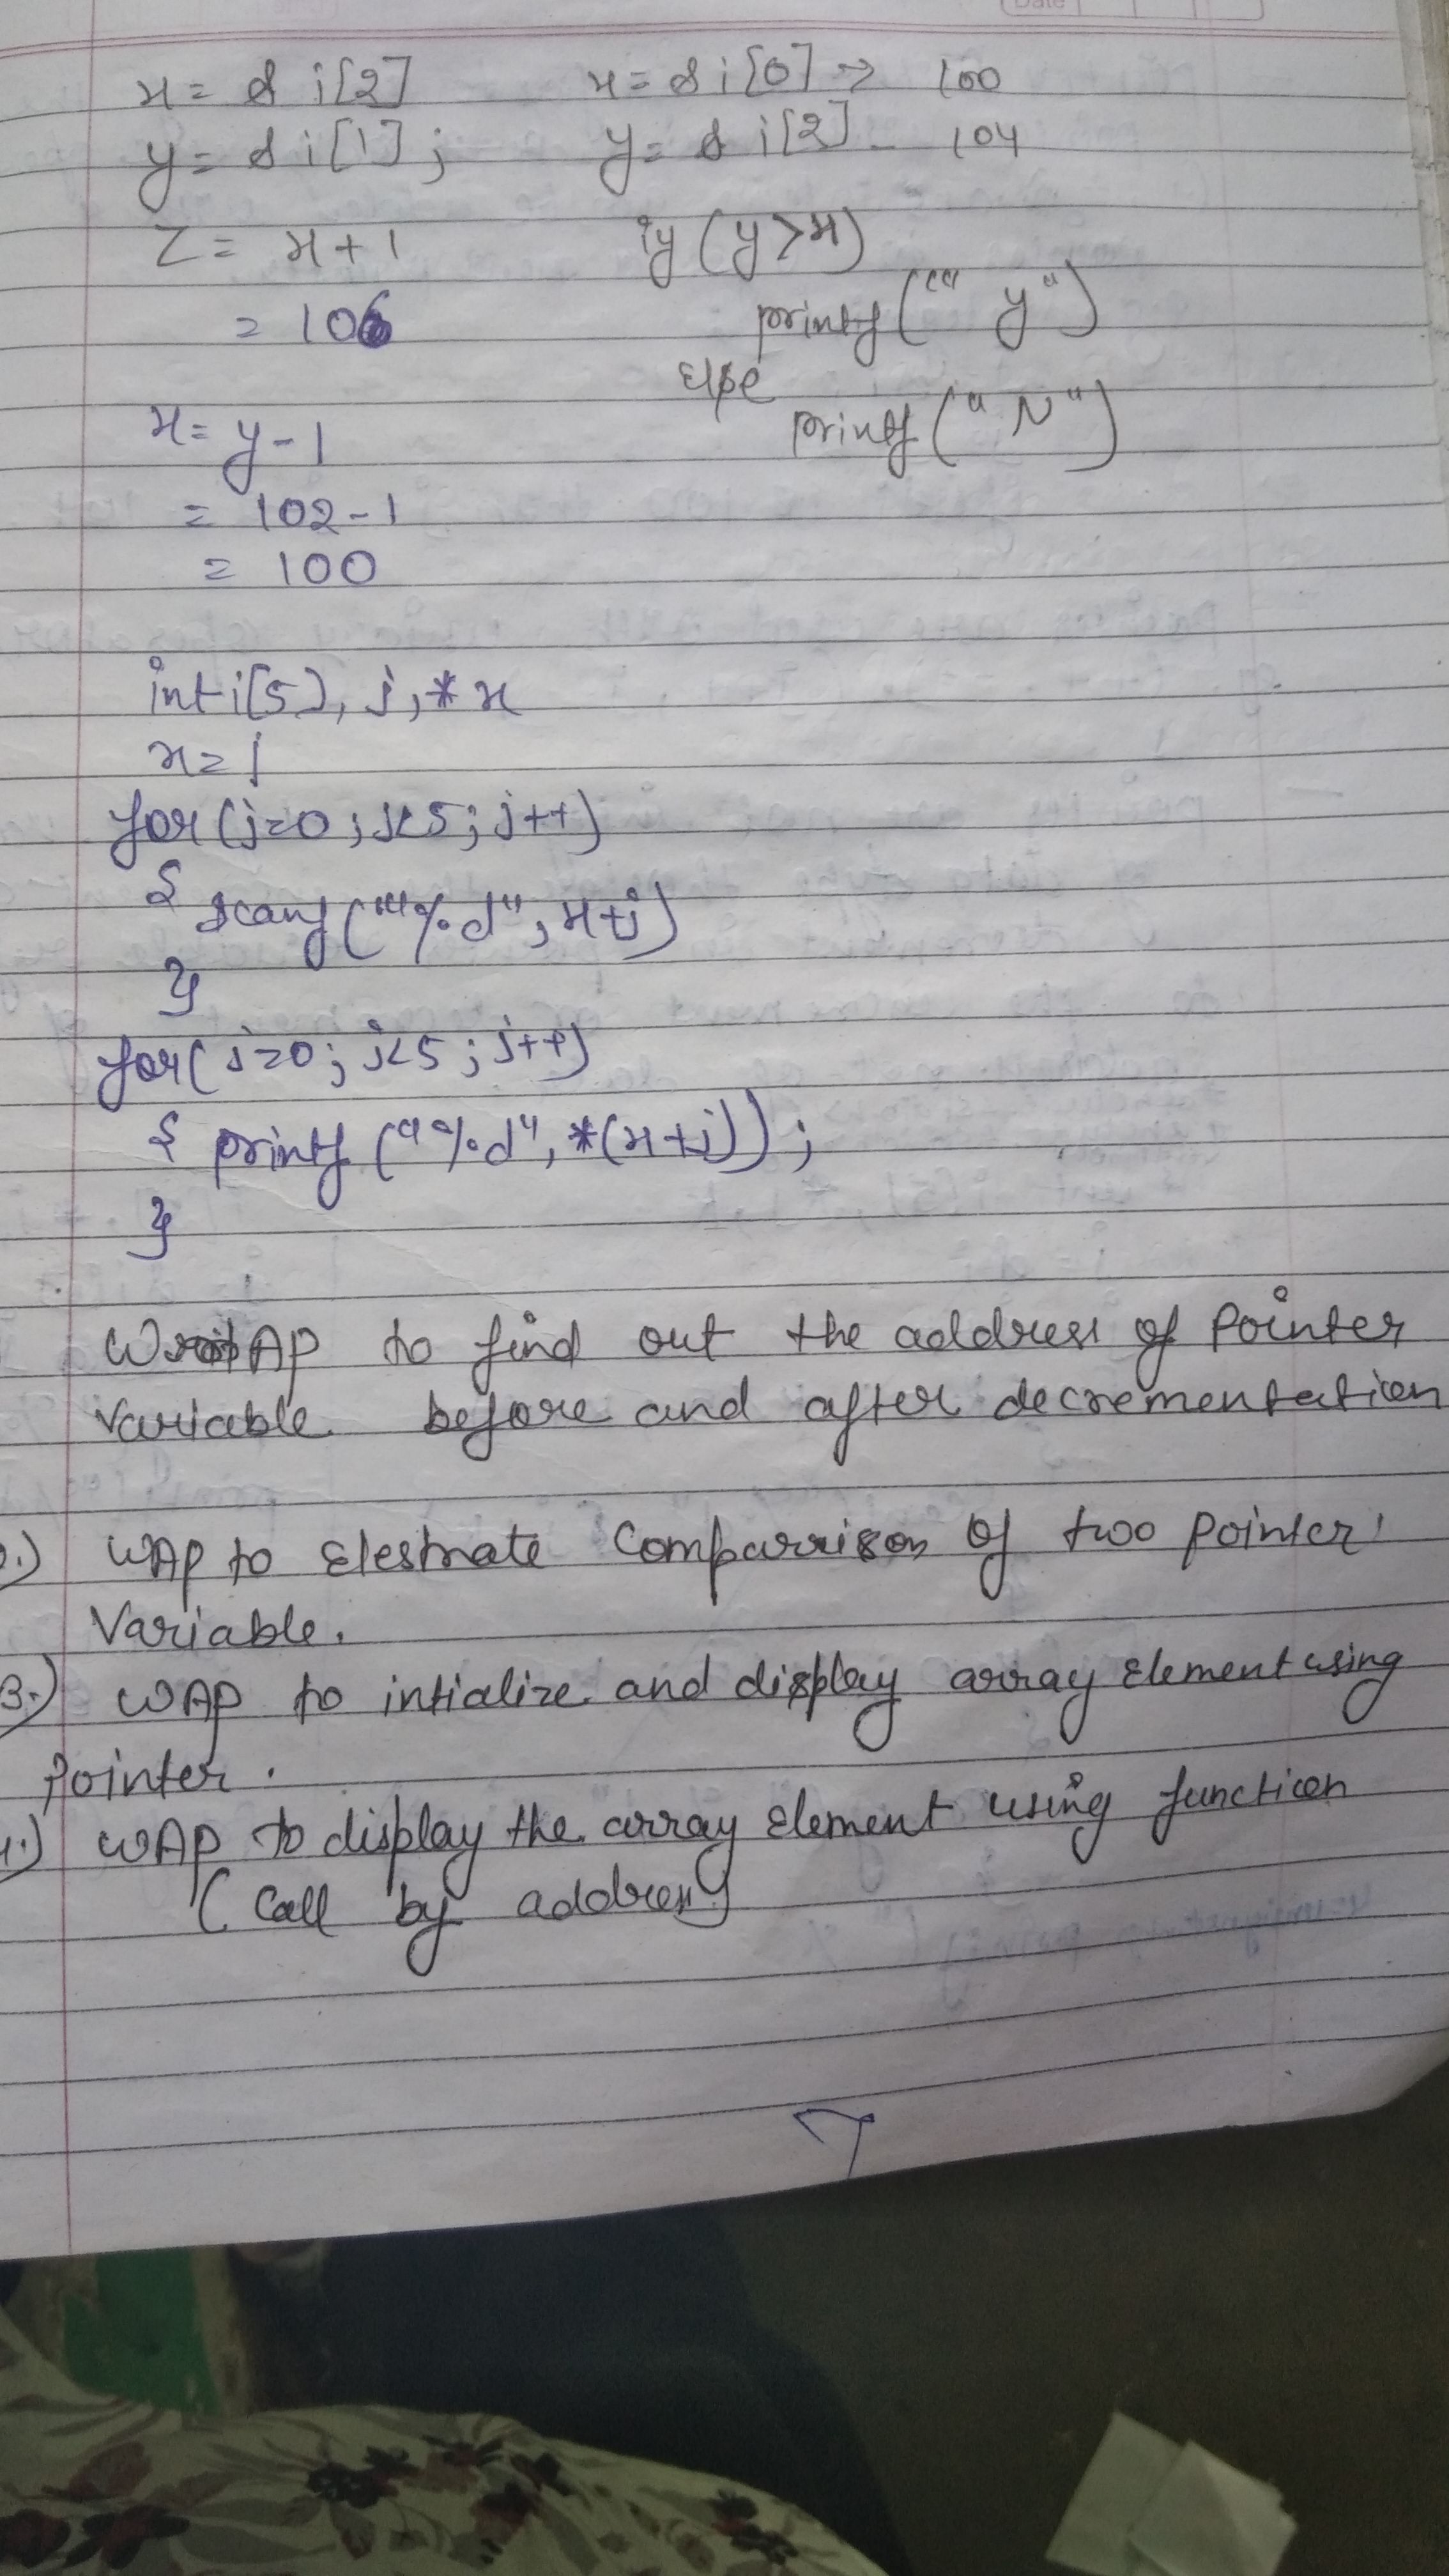 x = & i[2]
y = & i[1];
z = x + 1
= 106
x = y - 1
= 102 - 1
= 100
x = & i[0] → 100
y = & i[2] - 104
if (y > x)
printf (" y ")
else
printf (" N ")
int i[5], j, * x
x = i
for (j=0; j<5; j++)
{ scanf ("%d", x+j)
}
for (j=0; j<5; j++)
{ printf ("%d", *(x+j));
}
WAP to find out the address of Pointer
Variable before and after decrementation
2.) WAP to Elestrate Comparrison of two pointer
Variable.
3.) WAP to intialize and display array Element using
Pointer.
4.) WAP to display the array Element using function
( Call by address)